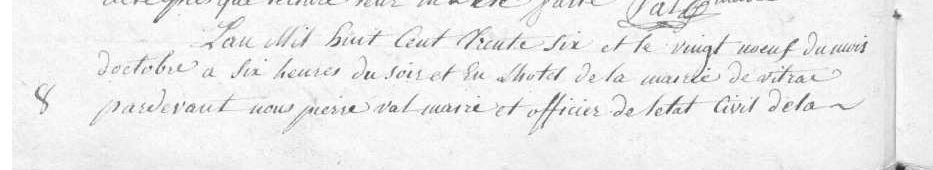 Lan Mil huit Cent Trente Six et le vingt noeuf du mois
doctobre a Six heures du Soir et En Lhotel de la mairie de vitrac
8 pardevant nous pierre val maire et officier de letat Civil dela